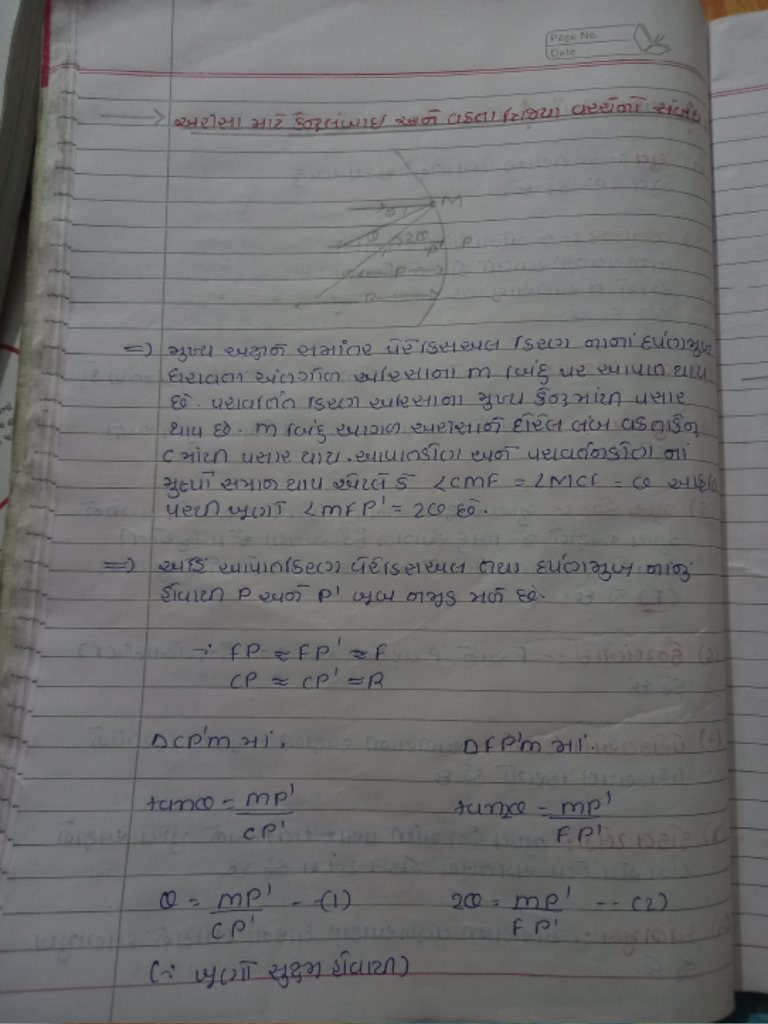 Page No.
Date
અરીસા માટે કેન્દ્રલંબાઇ અને વક્રતા ત્રિજ્યા વચ્ચેનો સંબંધ
M
θ
θ 2θ P' P
F
R
=) મુખ્ય અક્ષને સમાંતર પેરેક્સિઅલ કિરણ નાનાં દર્પણમુખ
ધરાવતા અંતર્ગોળ અરિસાના m બિંદુ પર આપાત થાય
છે. પરાવર્તિત કિરણ અરિસાના મુખ્ય કેન્દ્રમાંથી પસાર
થાય છે. m બિંદુ આગળ અરીસાને દોરેલ લંબ વક્રતાકેન્દ્ર
C માંથી પસાર થાય. આપાતકોણ અને પરાવર્તનકોણ નાં
મુલ્યો સમાન થાય એટલે કે ∠CMF = ∠MCF = θ આકૃતિ
પરથી ખુણો ∠MFP' = 2θ છે.
=) અહિં આપાતકિરણ પેરેક્સિઅલ તથા દર્પણમુખ નાનુ
હોવાથી P અને P' ખુબ નજીક મળે છે.
∴ FP ≈ FP' ≈ F
CP ≈ CP' ≈ R
ΔCP'm માં, ΔFP'm માં,
tanθ = mp'/CP' tan2θ = mp'/FP'
θ = mp'/CP' -- (1) 2θ = mp'/FP' -- (2)
(∵ ખુણો સુક્ષ્મ હોવાથી)